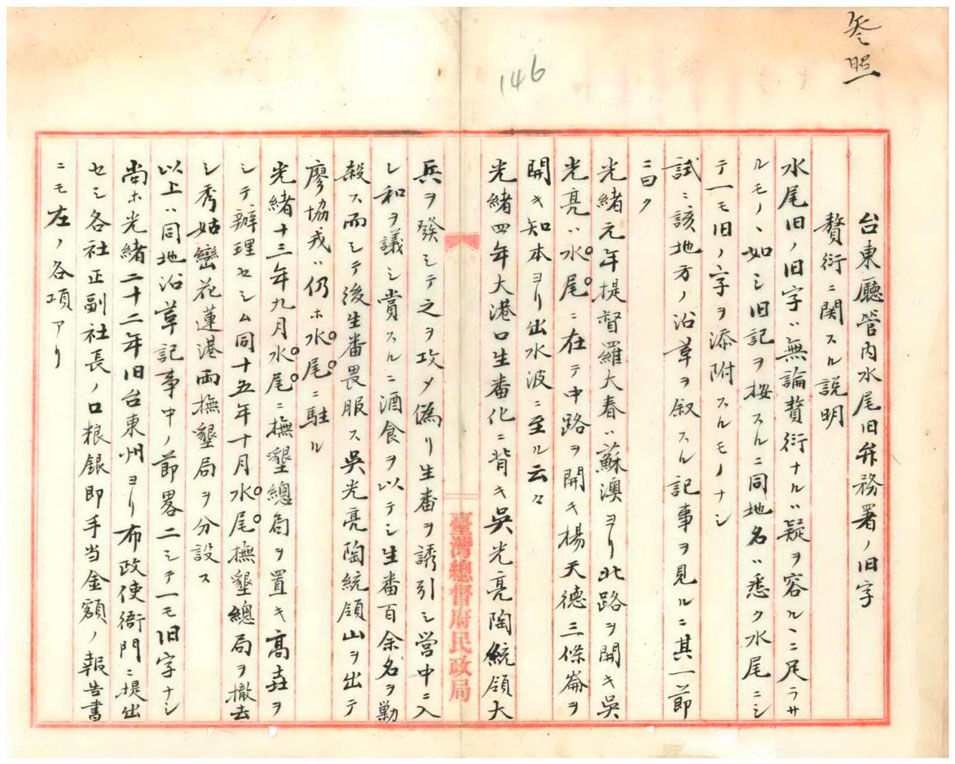 参照
146
台東廳管内水尾旧弁務署ノ旧字
贅衍ニ関スル説明
水尾旧ノ旧字ハ無論贅衍ナルハ疑ヲ容ルヽニ足ラサ
ルモノヽ如シ旧記ヲ按スルニ同地名ハ悉ク水尾ニシ
テ一モ旧ノ字ヲ添附スルモノナシ
試ニ該地方ノ沿革ヲ叙スル記事ヲ見ルニ其一節
ニ曰ク
光緒元年提督羅大春ハ蘇澳ヨリ北路ヲ開キ呉
光亮ハ水尾ニ在テ中路ヲ開キ楊天德三條崙ヲ
開キ知本ヨリ出水波ニ至ル云々
光緒四年大港口生番化ニ背キ呉光亮陶統領大
兵ヲ發シテ之ヲ攻メ偽リ生番ヲ誘引シ営中ニ入
レ和ヲ議シ賞スルニ酒食ヲ以テシ生番百余名ヲ勦
殺ス而シテ後生番畏服ス呉光亮陶統領山ヲ出テ
廖協戎ハ仍ホ水尾ニ駐ル
光緒十三年九月水尾ニ撫墾總局ヲ置キ高垚ヲ
シテ辦理セシム同十五年十月水尾撫墾總局ヲ撤去
シ秀姑巒花蓮港両撫墾局ヲ分設ス
以上ハ同地沿革記事中ノ節畧ニシテ一モ旧字ナシ
尚ホ光緒二十二年旧台東州ヨリ布政使衙門ニ提出
セシ各社正副社長ノ口粮銀即手当金額ノ報告書
ニモ左ノ各項アリ
臺灣總督府民政局